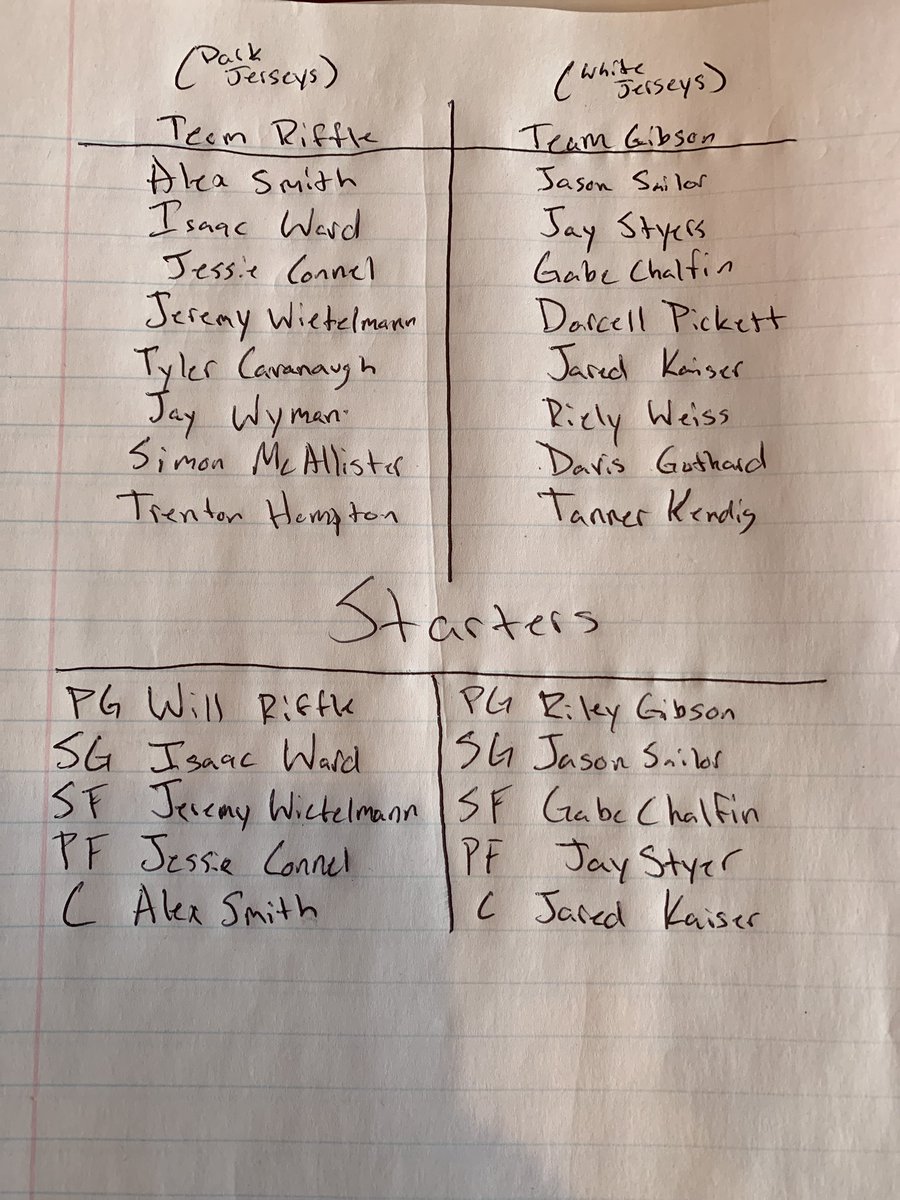 (Dark Jerseys)
Team Riffle
Alex Smith
Isaac Ward
Jessie Connel
Jeremy Wietelmann
Tyler Cavanaugh
Jay Wyman
Simon McAllister
Trenton Hampton
(White Jerseys)
Team Gibson
Jason Sailor
Jay Styers
Gabe Chalfin
Darcell Pickett
Jared Kaiser
Riely Weiss
Davis Gothard
Tanner Kendig
Starters
PG Will Riffle
SG Isaac Ward
SF Jeremy Wietelmann
PF Jessie Connel
C Alex Smith
PG Riley Gibson
SG Jason Sailor
SF Gabe Chalfin
PF Jay Styer
C Jared Kaiser